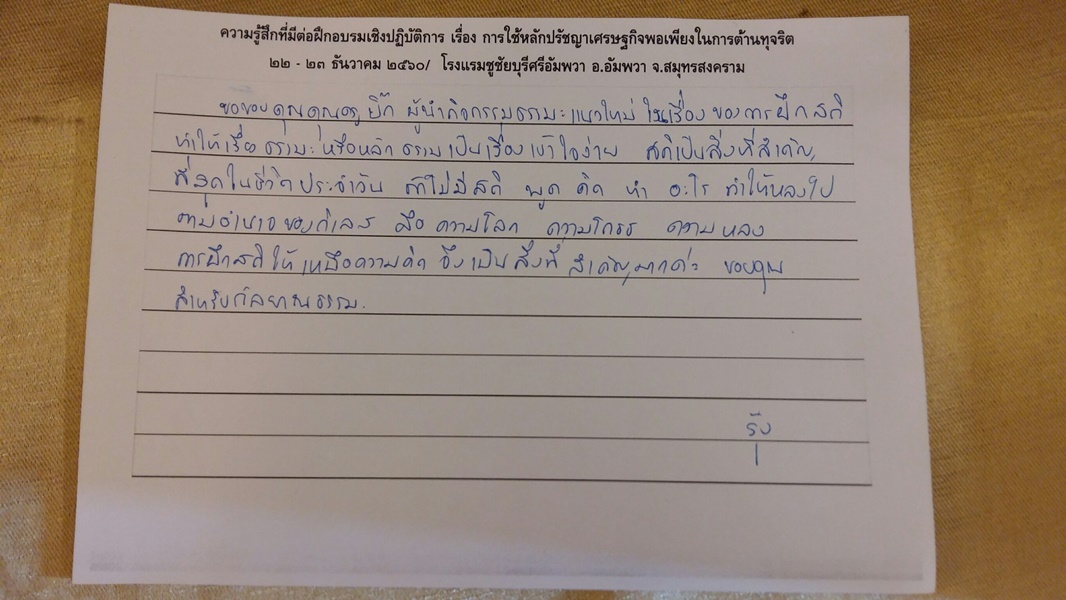 ความรู้สึกที่มีต่อฝึกอบรมเชิงปฏิบัติการ เรื่อง การใช้หลักปรัชญาเศรษฐกิจพอเพียงในการต้านทุจริต
๒๒ - ๒๓ ธันวาคม ๒๕๖๐/ โรงแรมชูชัยบุรีศรีอัมพวา อ.อัมพวา จ.สมุทรสงคราม
ขอขอบคุณคุณครู ผู้นำกิจกรรมธรรมะแนวใหม่ ในเรื่องของการฝึกสติ
ทำให้เรื่องธรรมะ หรือหลักธรรมเป็นเรื่องเข้าใจง่าย สติเป็นสิ่งที่สำคัญ
ที่สุดในชีวิตประจำวัน ถ้าไม่มีสติ พูด คิด ทำ อะไร ทำให้หลงไป
ตามอำนาจของกิเลส คือ ความโลภ ความโกรธ ความหลง
การฝึกสติให้เหนือความคิด จึงเป็นสิ่งที่สำคัญมากค่ะ ขอบคุณ
สำหรับกัลยาณธรรม.